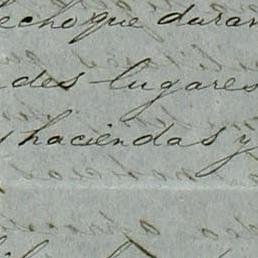 echo que duran
des lugares
y haciendas y